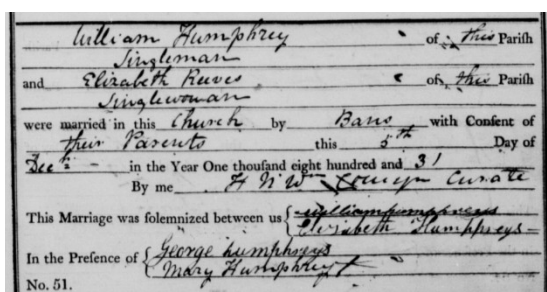 William Humphrey of this Parish
Singleman
and Elizabeth Reeves of this Parish
Singlewoman
were married in this Church by Bans with Consent of
their Parents this 5th Day of
Decr in the Year One thousand eight hundred and 31
By me Curate
This Marriage was solemnized between us William Humphreys
Elizabeth Humphreys
In the Presence of George Humphreys
Mary Humphreys
No. 51.